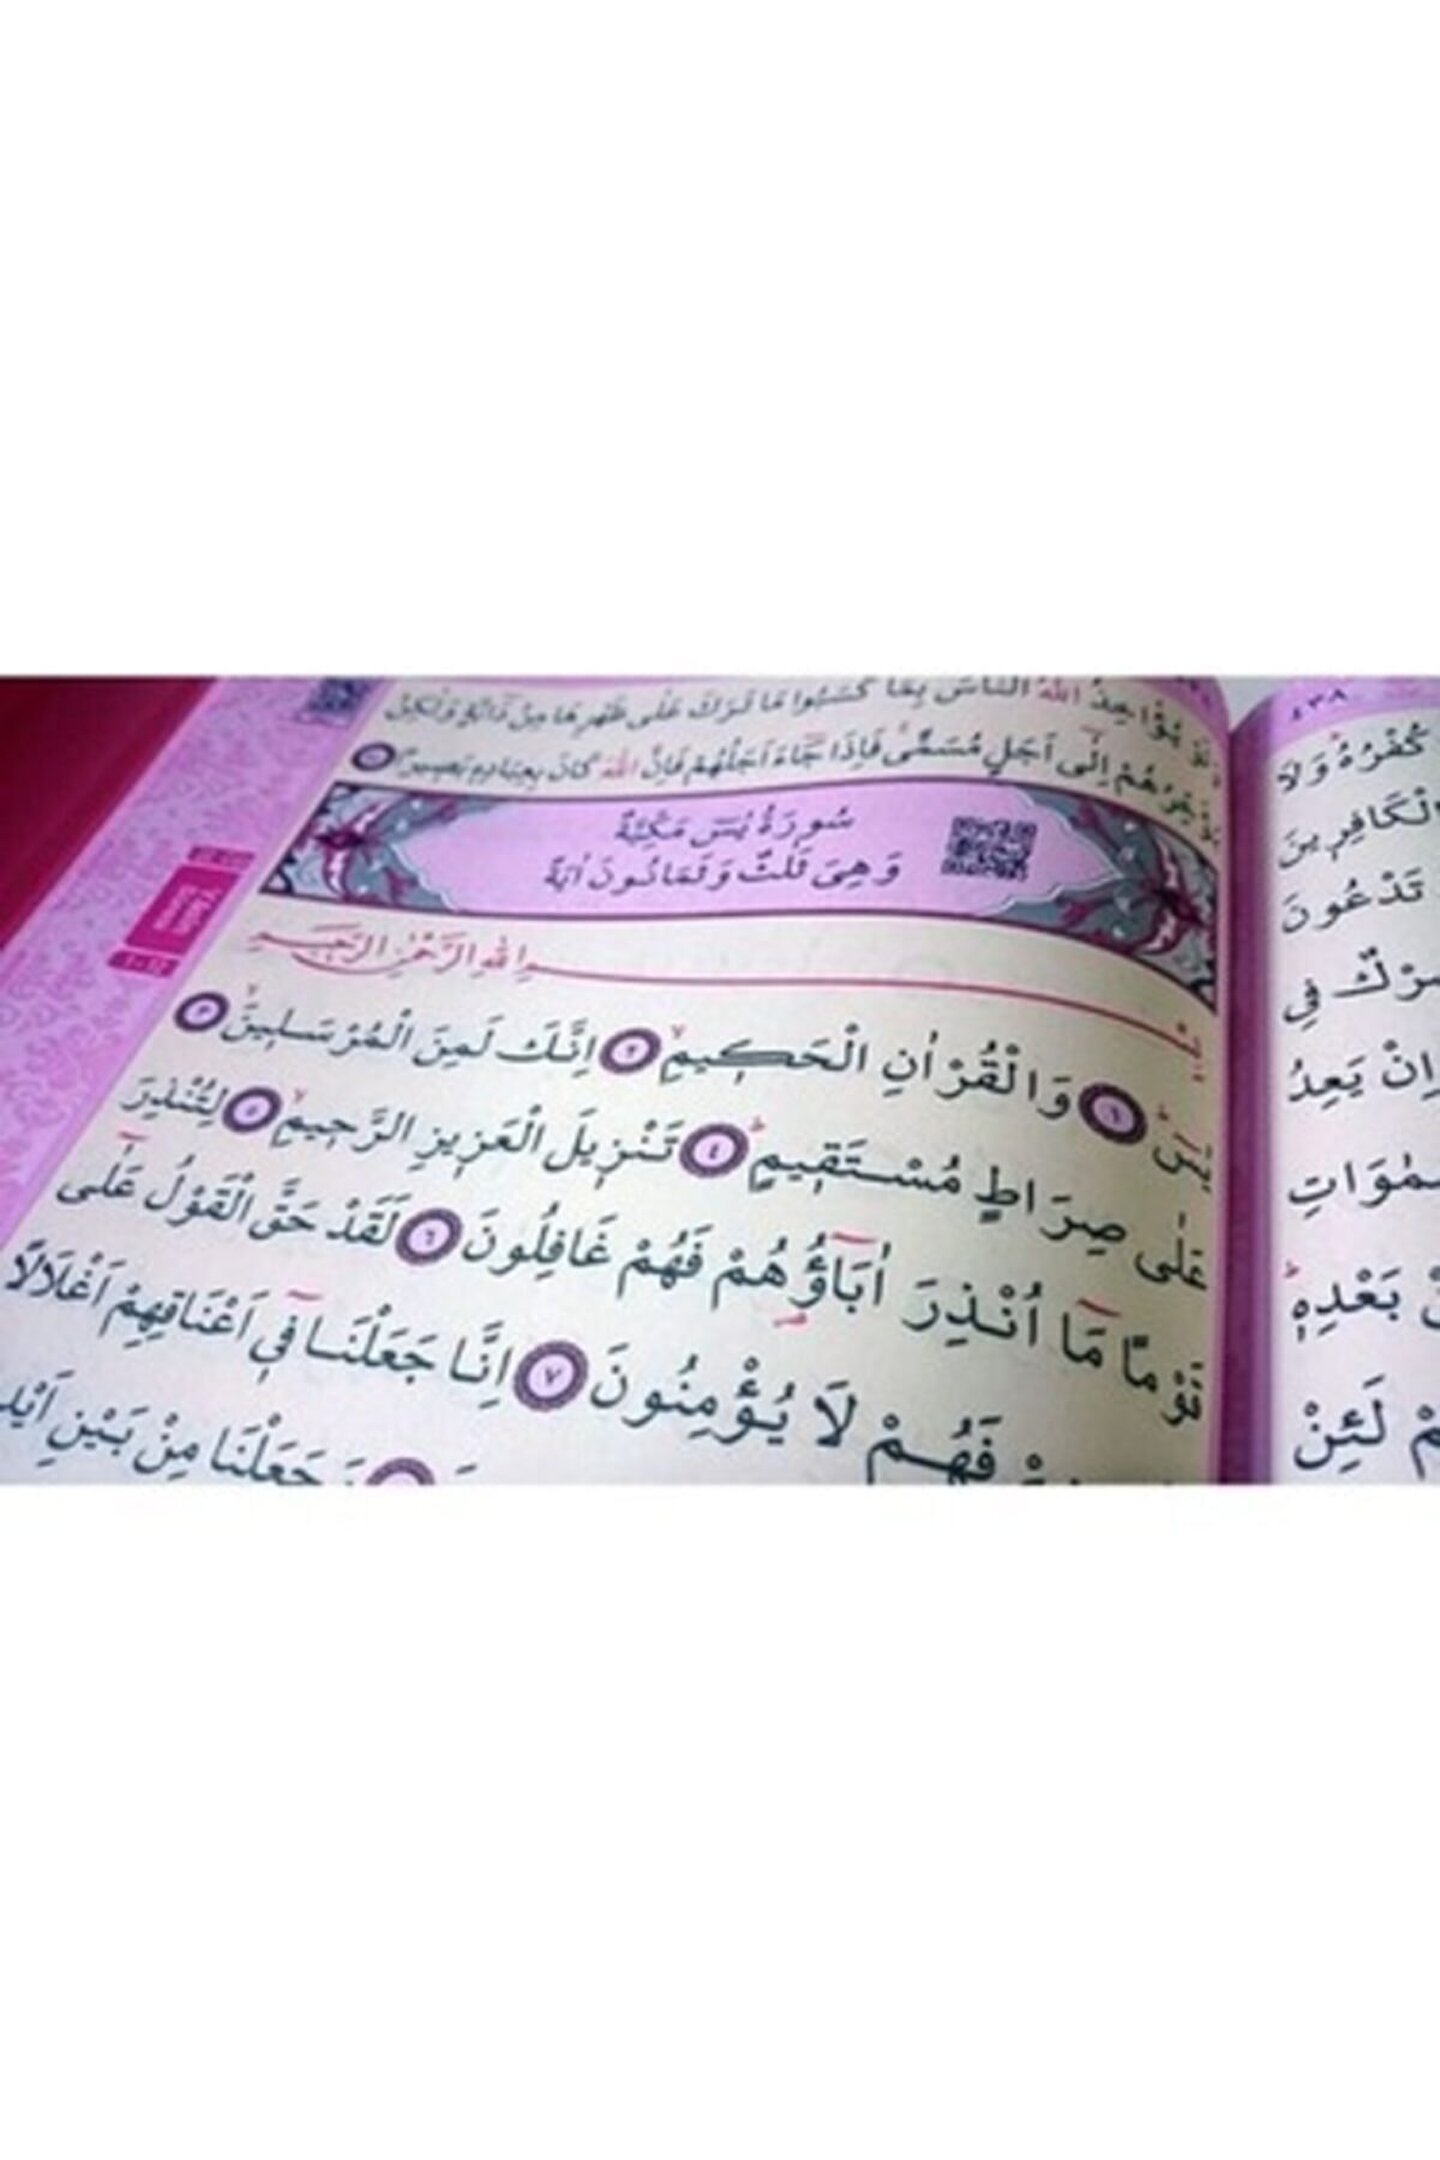 اللّٰهُ النَّاسَ بِمَا كَسَبُوا مَا تَرَكَ عَلٰى ظَهْرِهَا مِنْ دَٓابَّةٍ وَلٰكِنْ
يُؤَخِّرُهُمْ اِلٰٓى اَجَلٍ مُسَمًّىۚ فَاِذَا جَٓاءَ اَجَلُهُمْ فَاِنَّ اللّٰهَ كَانَ بِعِبَادِه۪ بَص۪يرًا
سُورَةُ يٰسٓ مَكِّيَّةٌ
وَهِىَ ثَلٰثٌ وَثَمَانُونَ اٰيَةً
بِسْمِ اللّٰهِ الرَّحْمٰنِ الرَّح۪يمِ
يٰسٓۜ ﴿١﴾ وَالْقُرْاٰنِ الْحَك۪يمِۙ ﴿٢﴾ اِنَّكَ لَمِنَ الْمُرْسَل۪ينَۙ ﴿٣﴾
عَلٰى صِرَاطٍ مُسْتَق۪يمٍۜ ﴿٤﴾ تَنْز۪يلَ الْعَز۪يزِ الرَّح۪يمِۙ ﴿٥﴾ لِتُنْذِرَ
قَوْمًا مَٓا اُنْذِرَ اٰبَٓاؤُ۬هُمْ فَهُمْ غَافِلُونَ ﴿٦﴾ لَقَدْ حَقَّ الْقَوْلُ عَلٰٓى
فَهُمْ لَا يُؤْمِنُونَ ﴿٧﴾ اِنَّا جَعَلْنَا ف۪ٓي اَعْنَاقِهِمْ اَغْلَالًا
جَعَلْنَا مِنْ بَيْنِ
٤٣٨
كُفْرُهُۜ وَلَا
الْكَافِر۪ينَ
تَدْعُونَ
شِرْكٌ فِي
اِنْ يَعِدُ
السَّمٰوَاتِ
بَعْدِه۪ۜ
لَئِنْ